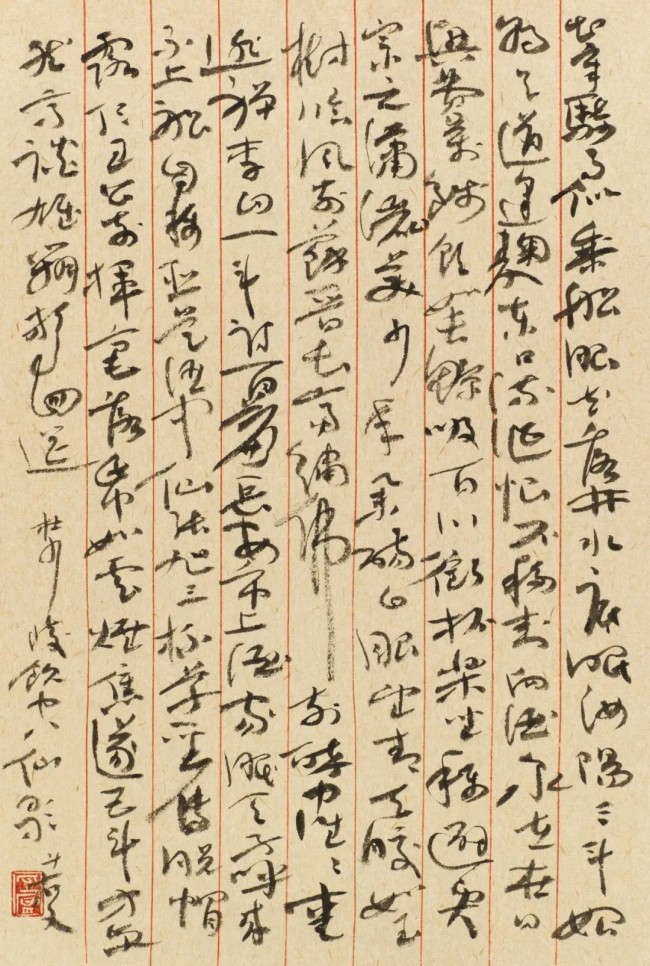 知章騎馬似乘船眼花落井水底眠汝陽三斗始
朝天道逢麯車口流涎恨不移封向酒泉左相日
興費萬錢飲如長鯨吸百川銜杯樂聖稱避賢
宗之瀟灑美少年舉觴白眼望青天皎如玉
樹臨風前蘇晉長齋繡佛前醉中往々愛
逃禪李白一斗詩百篇長安市上酒家眠天子呼來
不上船自稱臣是酒中仙張旭三杯草聖傳脫帽
露頂王公前揮毫落紙如雲煙焦遂五斗方卓
然高談雄辯驚四筵 杜少陵飲中八仙歌